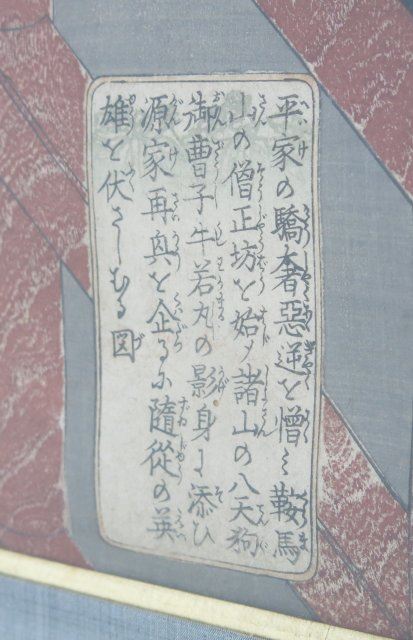 平家の驕奢惡逆を憎ミ鞍馬
山の僧正坊を始メ諸山の八天狗
御曹子牛若丸の影身に添ひ
源家再興を企るに随從の英
雄を伏さしむる図